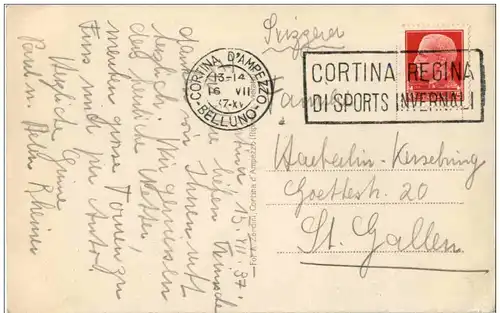 Svizzera
CORTINA D'AMPEZZO
13-14
16 VII
37-XV
BELLUNO
CORTINA REGINA
DI SPORTS INVERNALI
Familie
Haeberlin-Kersebring
Goethestr. 20
St. Gallen
Cortina 15. VII. 37.
Ihr lieben Freunde
danken wir Ihnen
herzlich. Wir geniessen
das herrliche Wetter,
machen grosse Touren zu
Fuss und per Auto.
Herzliche Grüsse
Paul u. Rheiner